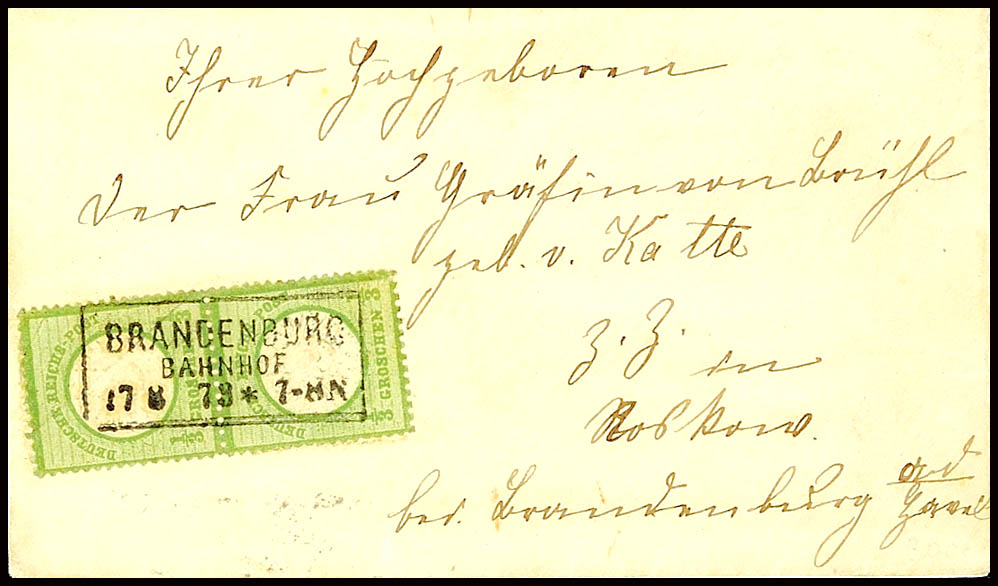 Ihrer Hochgeboren
der Frau Gräfin von Brühl
geb. v. Katte
z. Z. in
Roskow.
bei Brandenburg a/d Havel
BRANDENBURG
BAHNHOF
17 8 73 * 7-8N
DEUTSCHE REICHS-POST
1/3 GROSCHEN 1/3